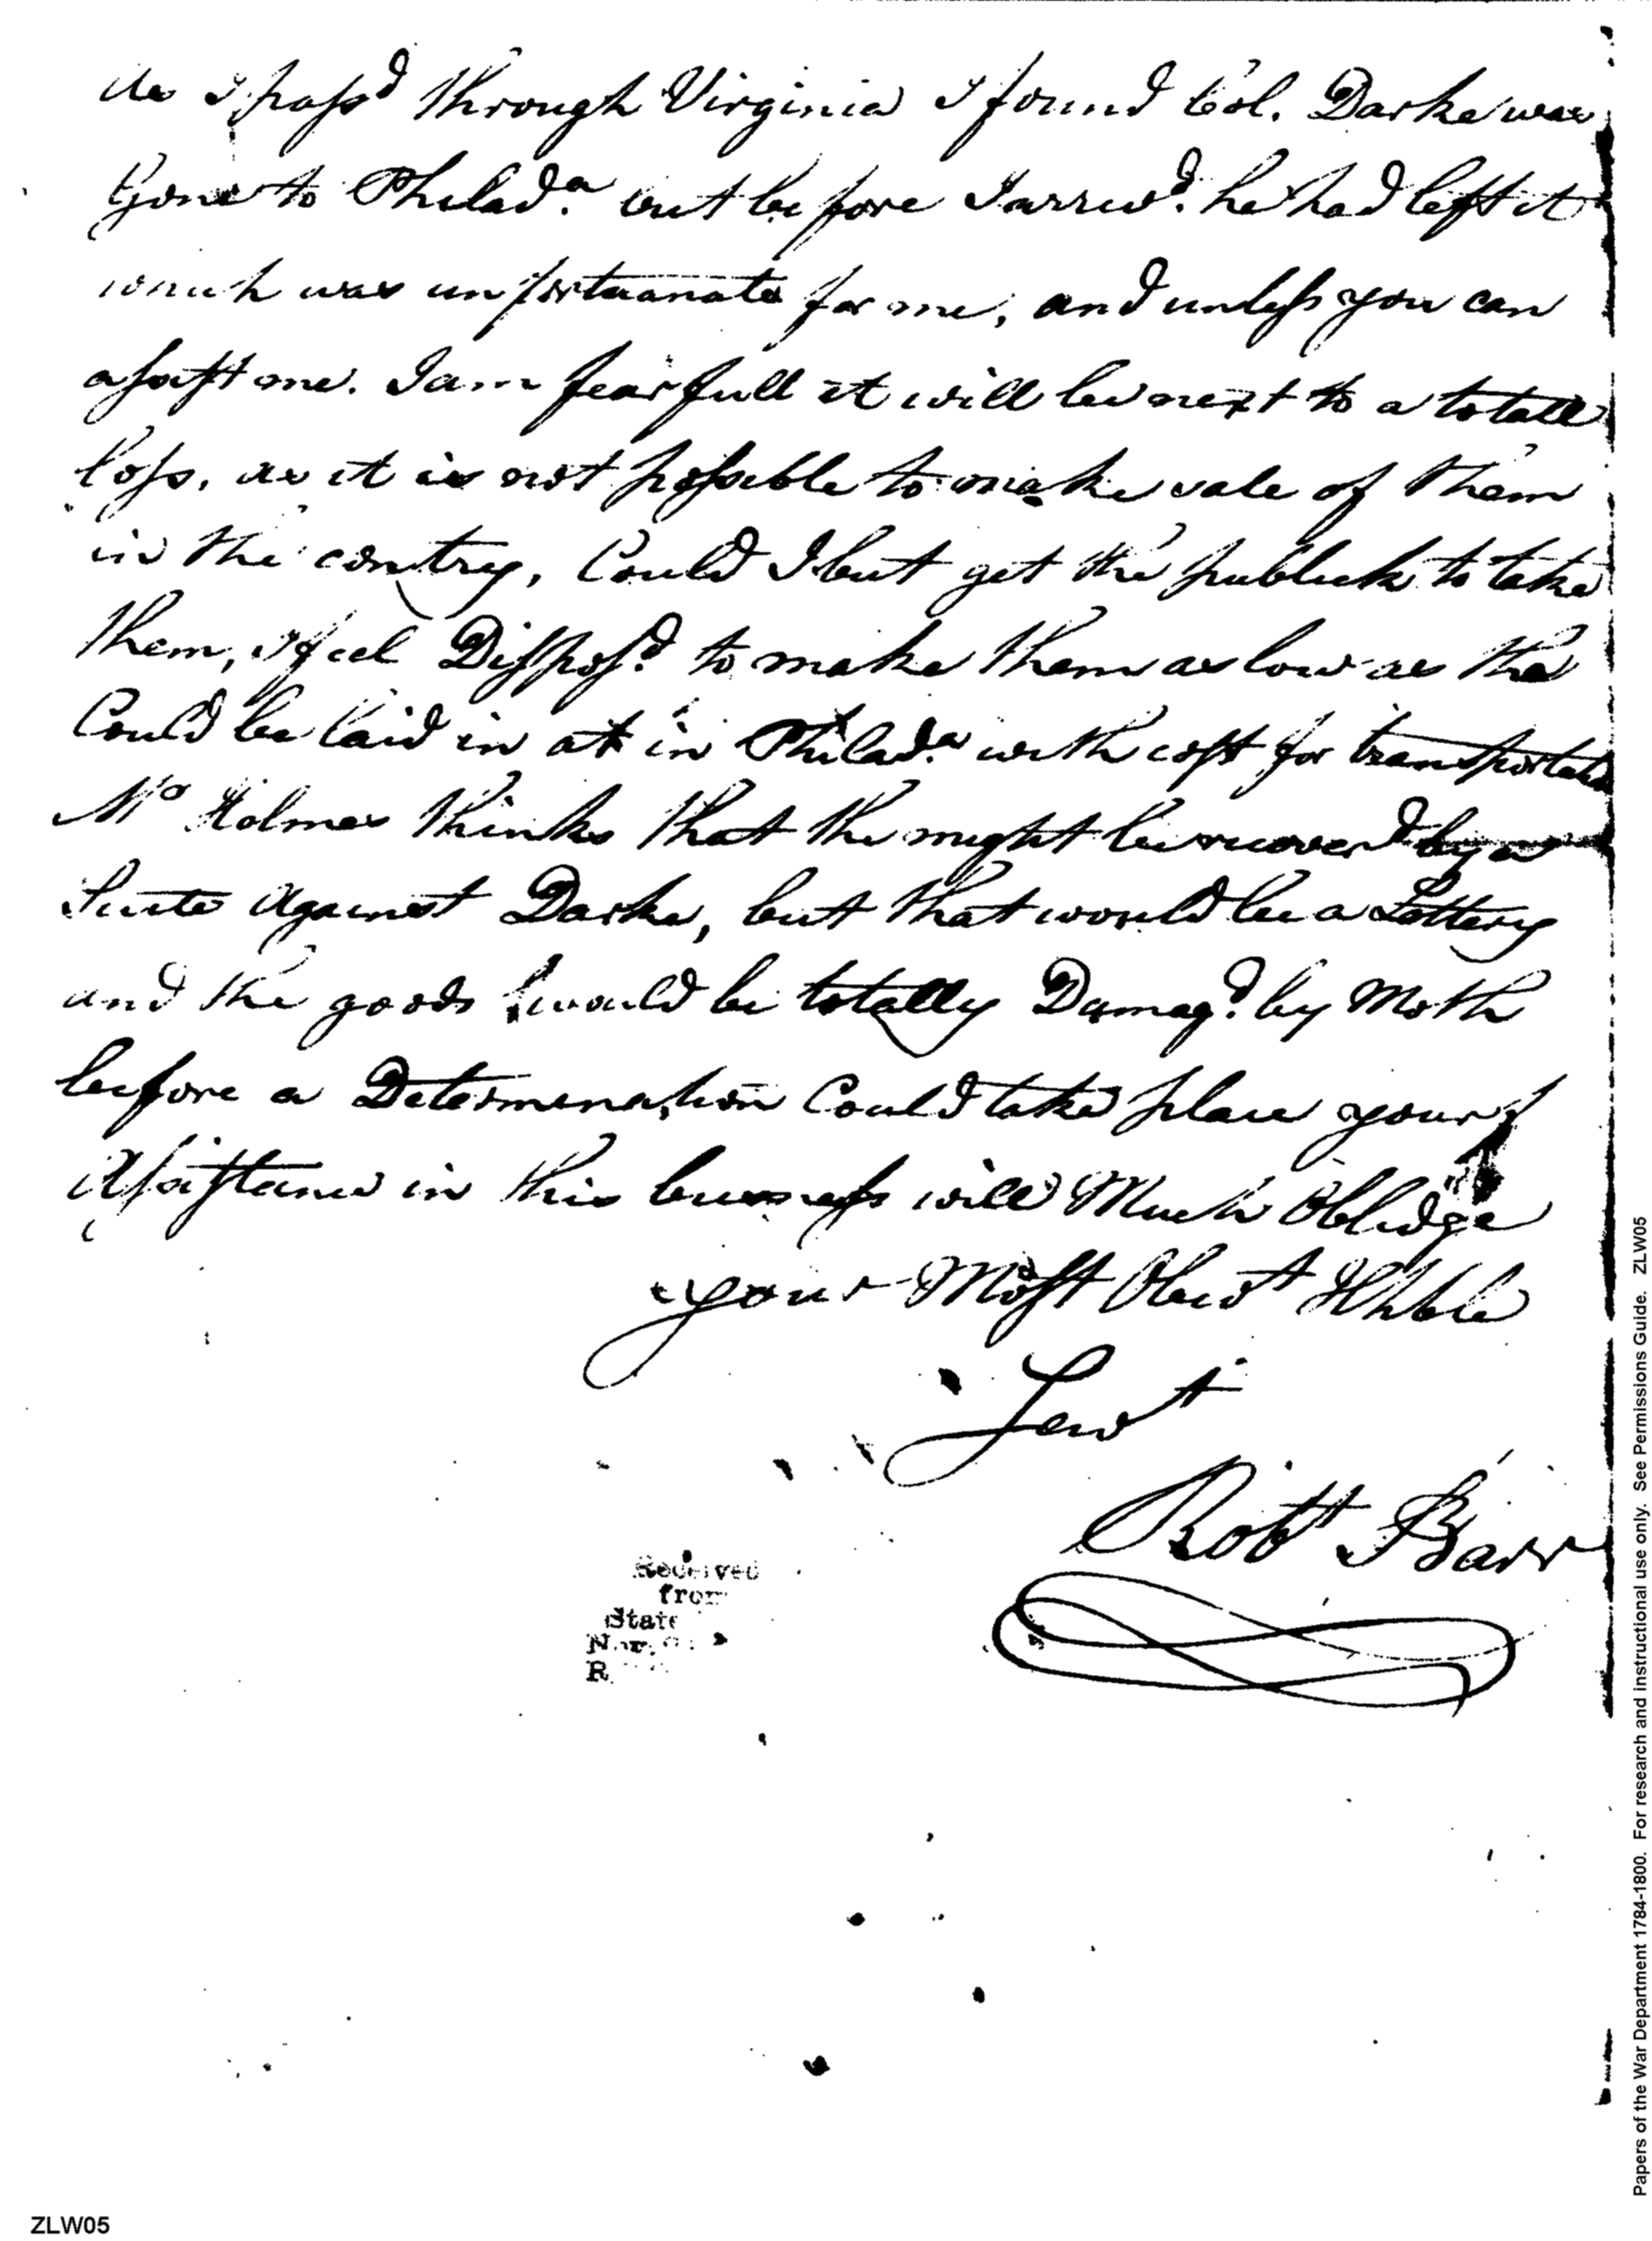 As I pass'd through Virginia I found Col. Darke was
Gone to Philad.a but before I arriv'd. he had left it
which was unfortuanate for me, and unless you can
assist me. I am fearfull it will be next to a totall
loss, as it is not possable to make sale of them
in the contry, Could I but get the publick to take
them, I feel Disspos.d to make them as low as the
Could be laid in at in Philad.a with cost for transportat
Mr Holmes thinks that the might be recover'd by a
Suite Against Darke, but that would be a Lottery
and the goods would be totally Damag.d by Moth
before a Determenation Could take place your
Assistance in this business will Much Oblidge
your Most Obedt Hble
Servt
Robt Barr
Received
from
State
R
ZLW05
Papers of the War Department 1784-1800. For research and instructional use only. See Permissions Guide. ZLW05